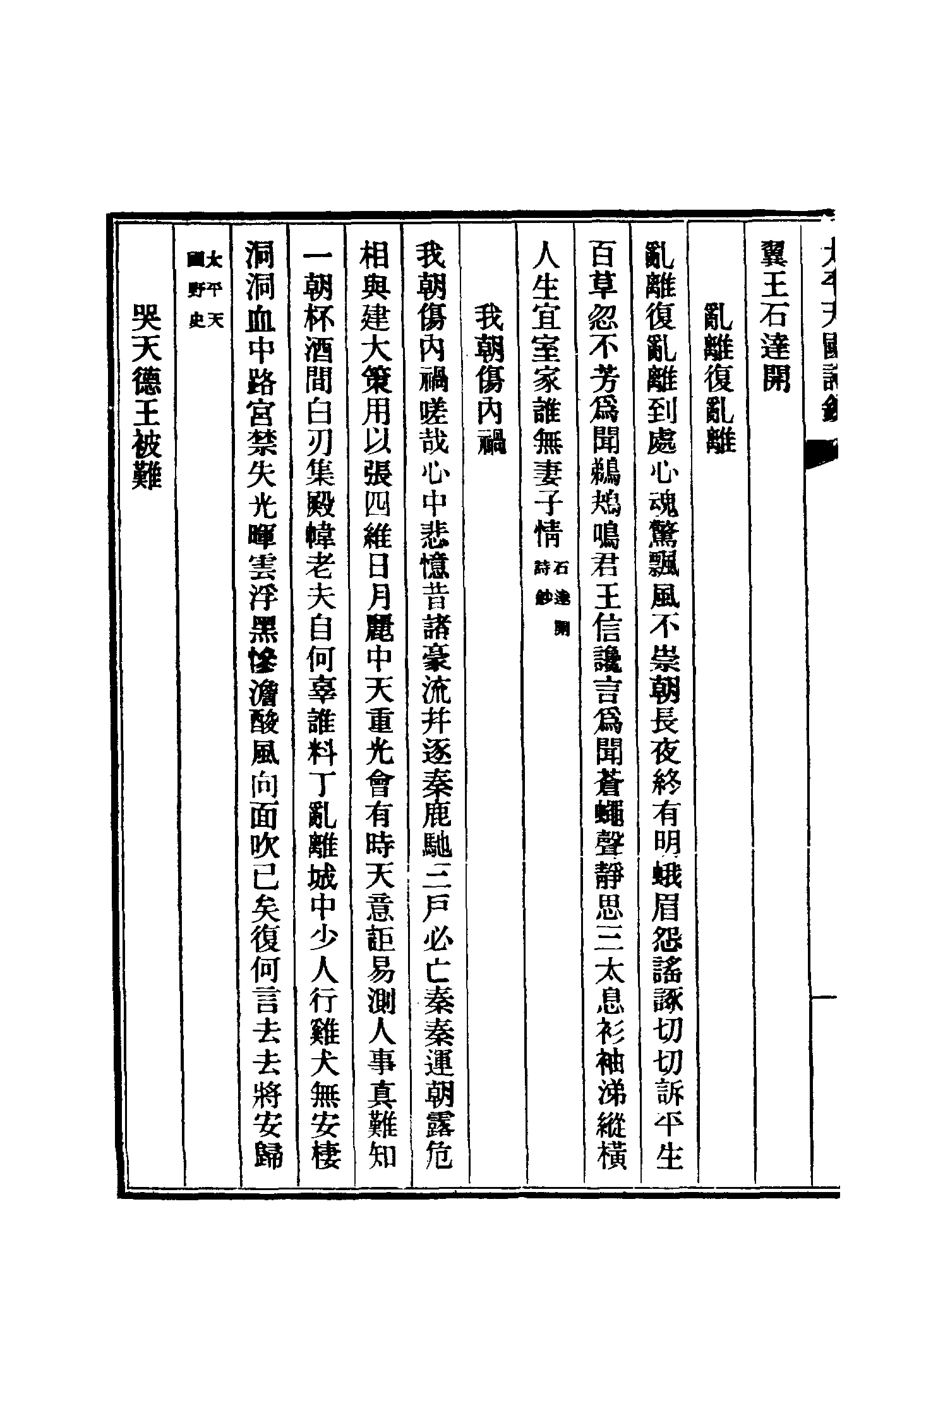 太平天國詩鈔
翼王石達開
亂離復亂離
亂離復亂離到處心魂驚飄風不崇朝長夜終有明蛾眉怨謠諑切切訴平生
百草忽不芳爲聞鵜鴂鳴君王信讒言爲聞蒼蠅聲靜思三太息衫袖涕縱橫
人生宜室家誰無妻子情
石達開
詩鈔
我朝傷內禍
我朝傷內禍嗟哉心中悲憶昔諸豪流幷逐秦鹿馳三戶必亡秦秦運朝露危
相與建大策用以張四維日月麗中天重光會有時天意詎易測人事真難知
一朝杯酒間白刃集殿幃老夫自何辜誰料丁亂離城中少人行雞犬無安棲
洞洞血中路宮禁失光暉雲浮黑慘澹酸風向面吹已矣復何言去去將安歸
太平天
國野史
哭天德王被難